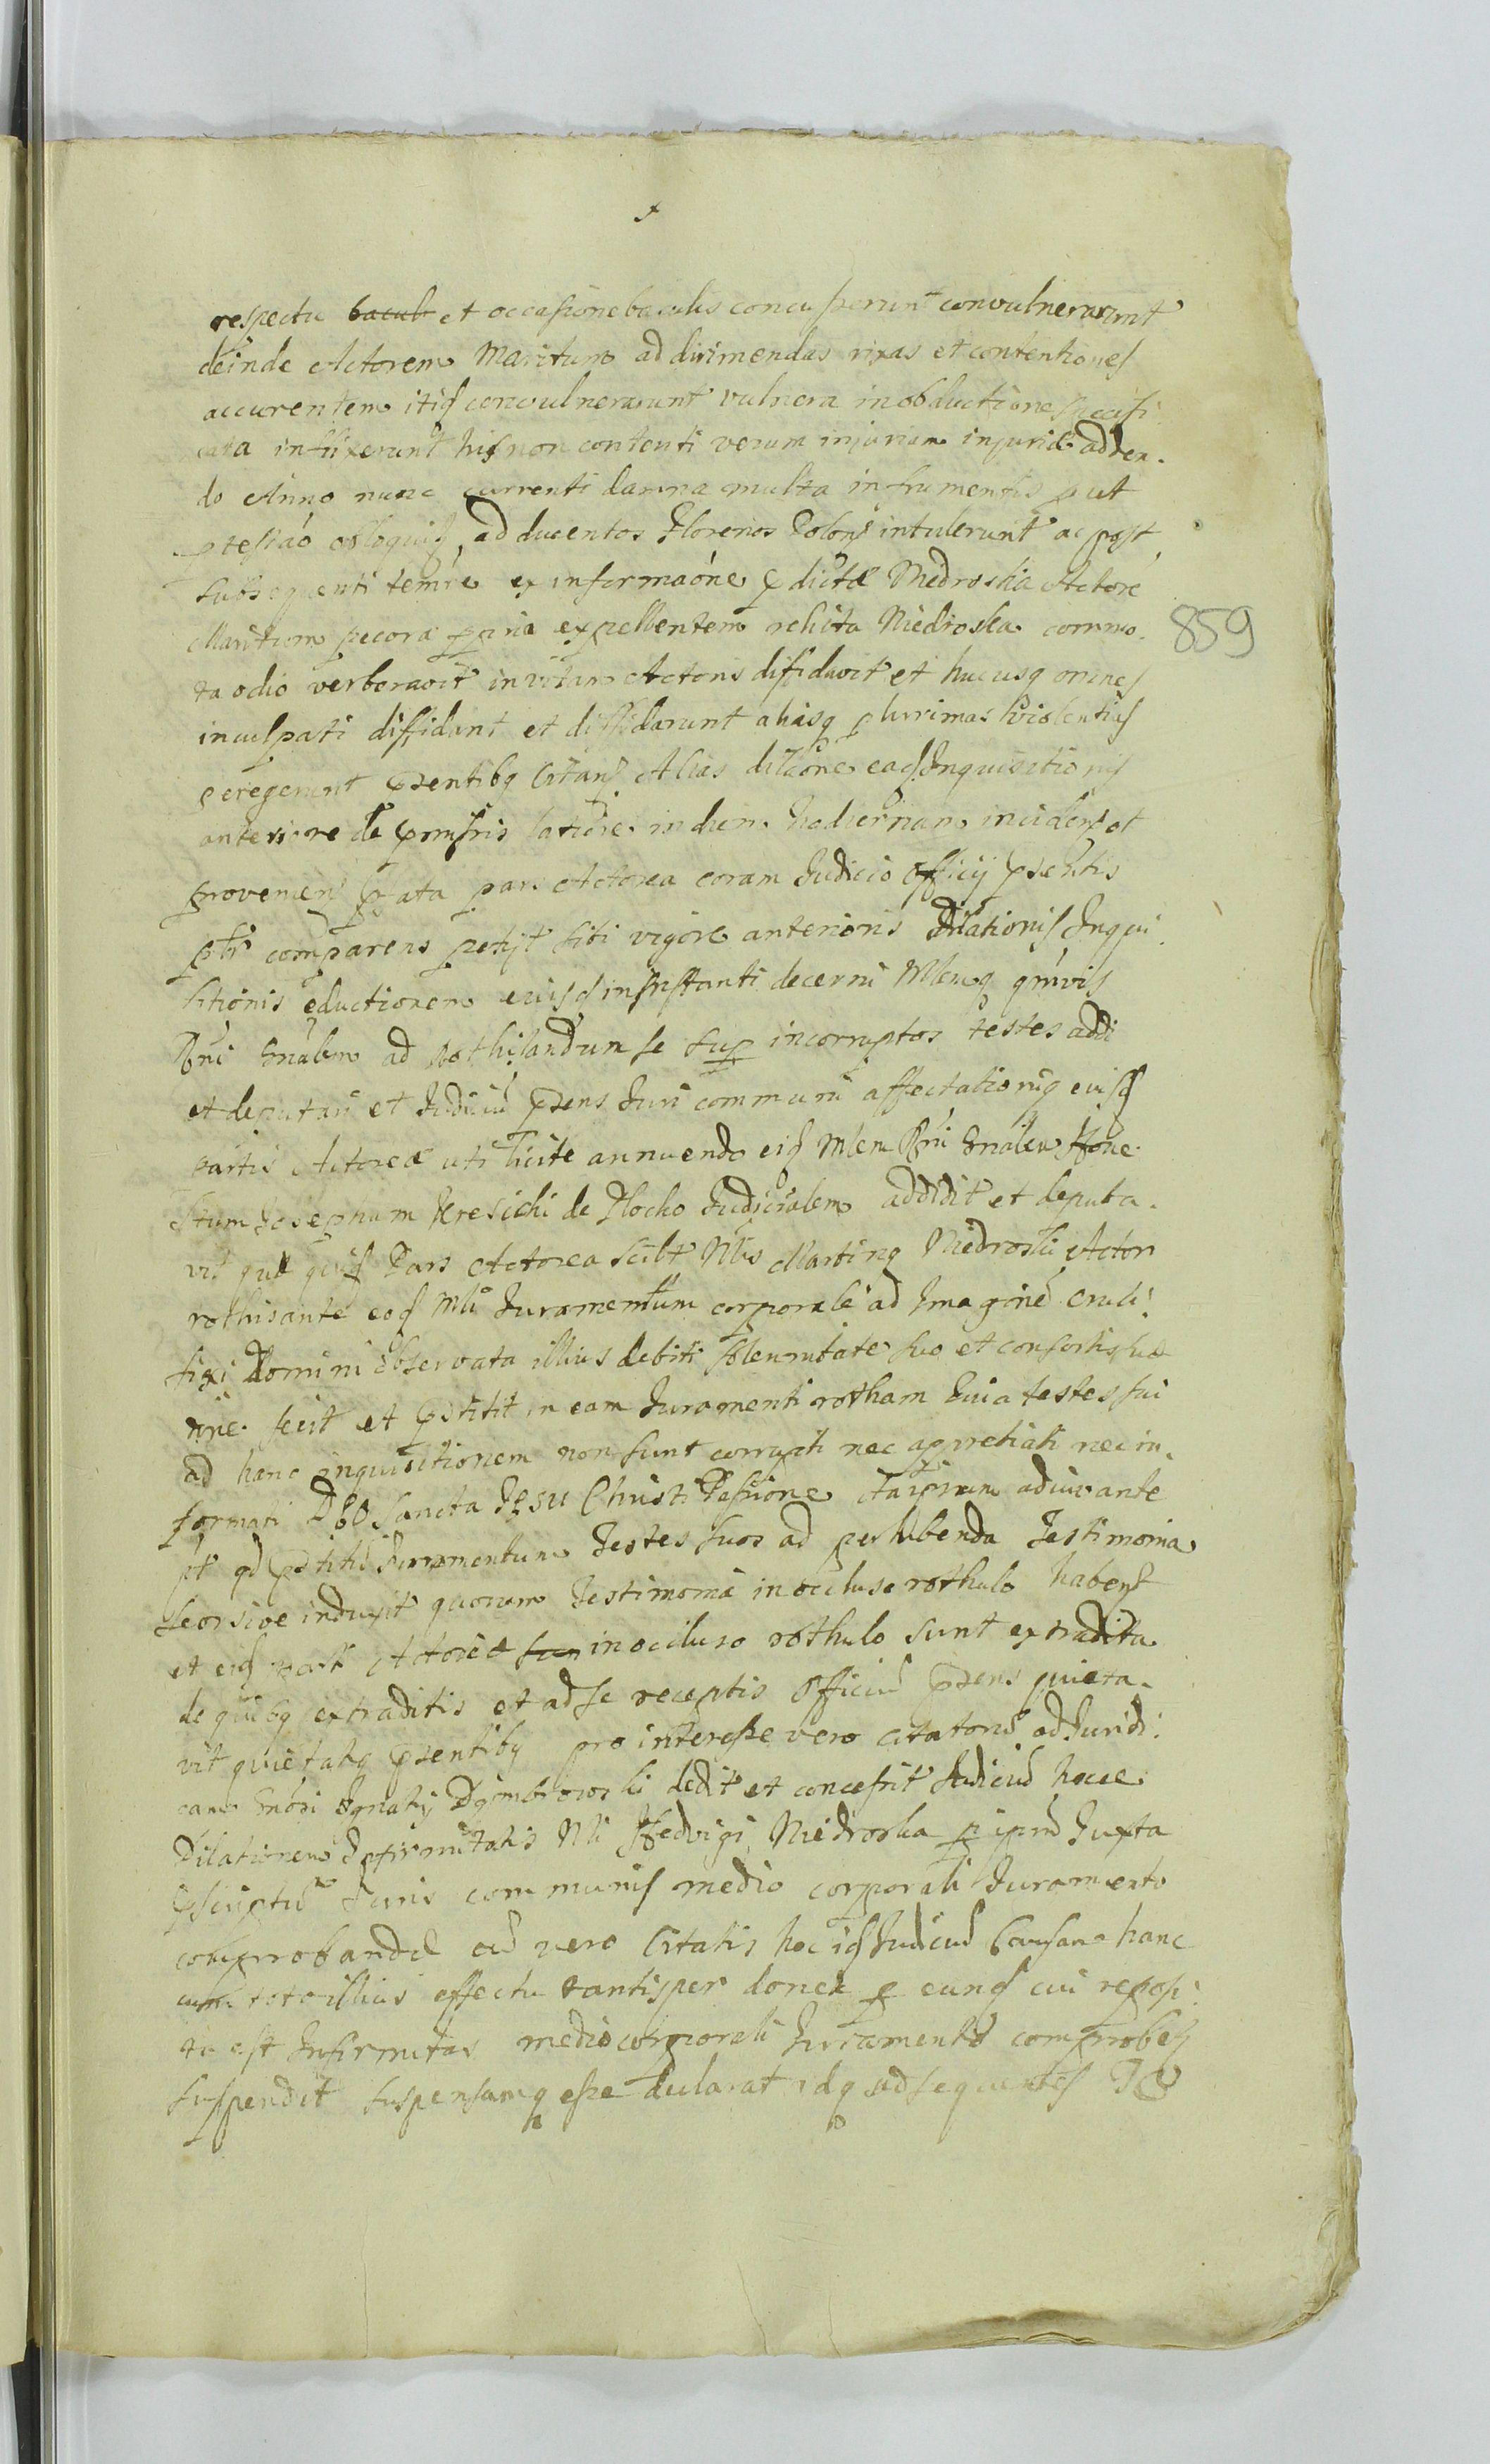 respectu bacul et occasione baculis concusserunt convulnerarunt
deinde Actorem Maritum ad dirimendas rixas et contentiones
accurentem itiq convulnerarunt vulnera in obductione specifi
cata inflixerunt his non contenti verum injuriam injuriæ adden-
do Anno nunc currenti damna multa in frumentis put
ptestáo obloquit ad ducentos Florenos Polon intulerunt ac post
subsequenti temre ex informaóne pdictæ Niedroska Actore
Maritum pecora ppria expellentem relicta Niedroska commo-
ta odio verberavit in vitam Actoris diffidavit et hucusq omnes
inculpati diffidant et diffidarunt aliasq plurimas violentias
peregerunt pzentibq Citañ Alias dilaóne eads Inquisitionis
anteriore de pmissis latiore in diem hodiernam inciden et
provenien pfata pars Actorea coram Judicio Officij pzentis
pltr comparens petijt sibi vigore anterioris Dilationis Inqui
sitionis eductionem eiusq in instanti decerni Mlemq qmvis
Rni Gnalem ad rothisandum se sup incorruptos testes addi
et deputari et Judiciu pzens Juri communi affectationiq eiusd
partis Actoreæ uti licite annuendo eiq Mlem Rni Gnalem Hone-
stum Josephum Kresichi de Plocko Judicialem addidit et deputa-
vit quæ quid Pars Actorea scilt Nlis Martinq Niedroski Actor
rothisante eod Mli Juramentum corporale ad Imagine Cruci-
fixi Domini observata illius debiti solennitate suo et consortis suæ
nne fecit et pstitit in eam Juramenti rotham Quia testes sui
ad hanc inquisitionem non sunt corrupti nec appretiati nec in-
formati Deo Sancta Jesu Christi Passione adiuvante
pt qd pstiti Juramentum Testes suos ad perhibenda Testimonia
seorsive induxit quorum Testimonia in occluso rothulo haben
et eid parti Actoreæ sun in occluso rothulo sunt extradita
de quibq extraditis et ad se receptis Officiu pzens quieta-
vit quietatq pzentibq pro interesse vero citatorū ad Juridi-
cam Gnosi Ignatij Dombrowski dedit et concessit Judiciu hocce
Dilationem Infirmitatis Nli Hedvigi Niedroska p ipm Juxta
pscriptu Juris communis medio corporali Juramento
comprobandæ vero Citatis hoc id Judiciu Causam hanc
cum toto illius effectu tantisper donec p eund cui reposi-
ta est Infirmitas medio corporali Juramento comprobet
suspendit suspensamq esse declarat idq ad sequentes
859